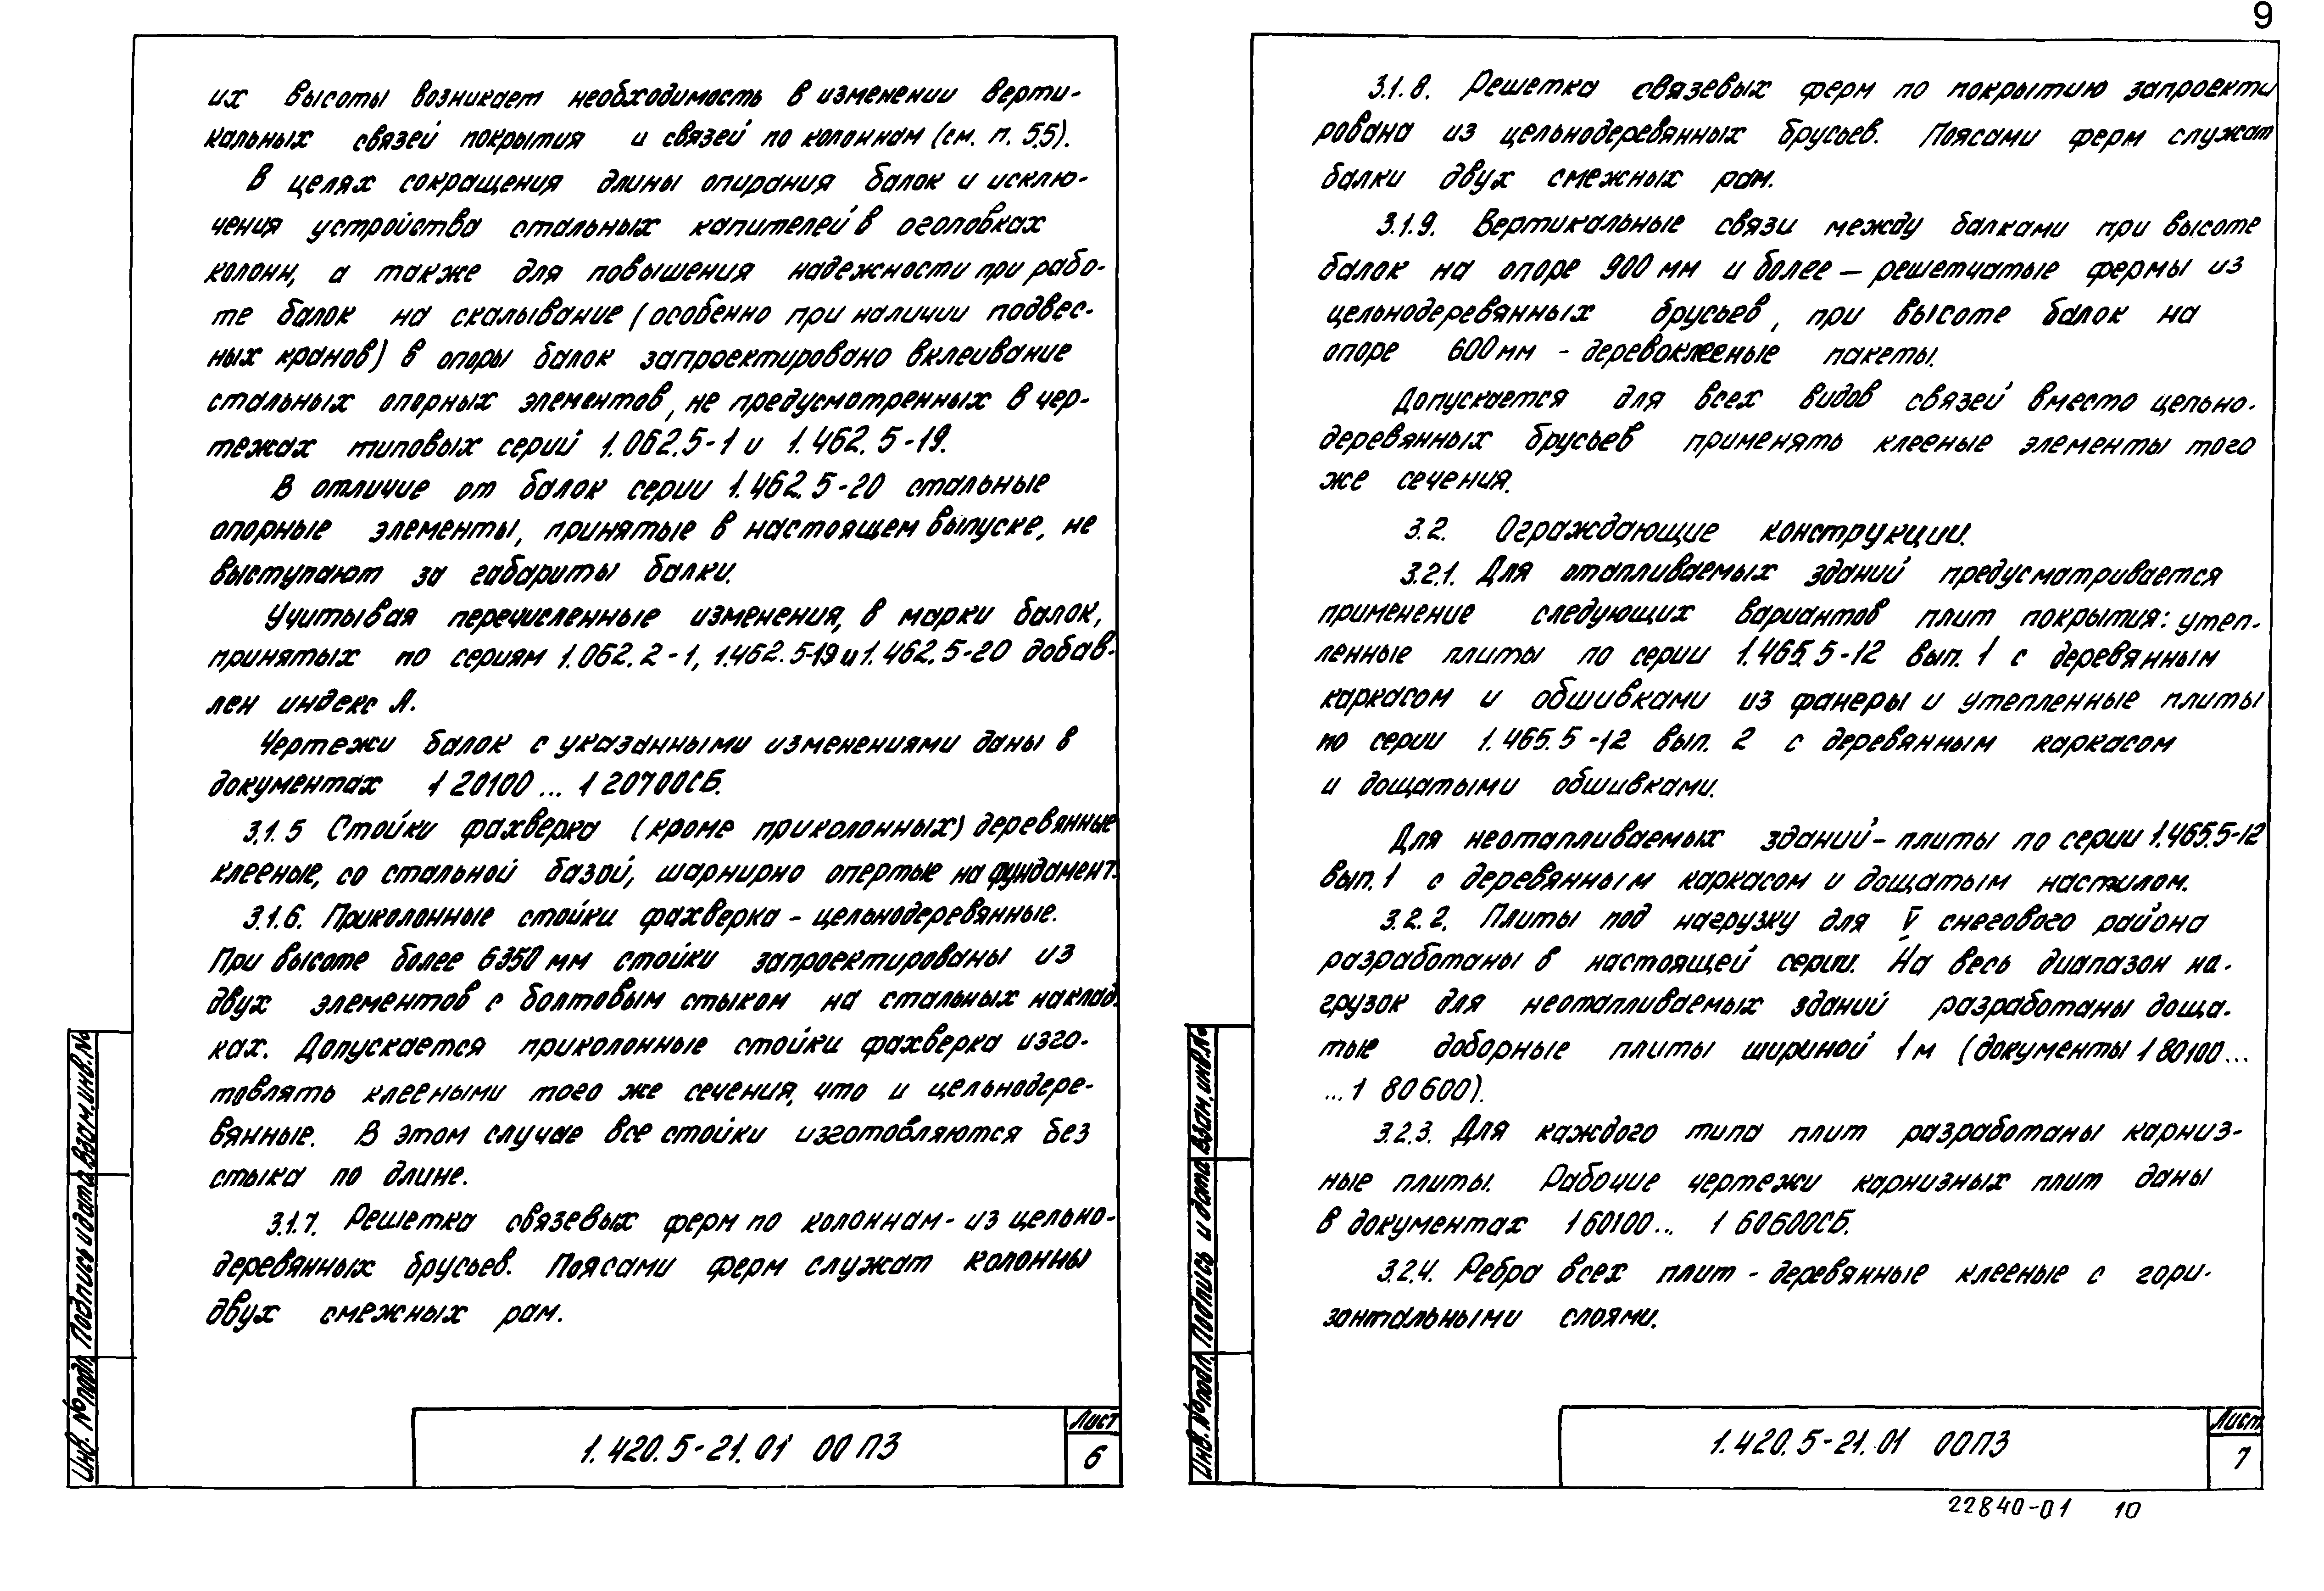 9
их высоты возникает необходимость в изменении верти-
кальных связей покрытия и связей по колоннам (см. п. 5.5).
В целях сокращения длины опирания балок и исклю-
чения устройства стальных капителей в оголовках
колонн, а также для повышения надежности при рабо-
те балок на скалывание (особенно при наличии подвес-
ных кранов) в опоры балок запроектировано вклеивание
стальных опорных элементов, не предусмотренных в чер-
тежах типовых серий 1.062.5-1 и 1.462.5-19.
В отличие от балок серии 1.462.5-20 стальные
опорные элементы, принятые в настоящем выпуске, не
выступают за габариты балки.
Учитывая перечисленные изменения, в марки балок,
принятых по сериям 1.062.2-1, 1.462.5-19 и 1.462.5-20 добав-
лен индекс А.
Чертежи балок с указанными изменениями даны в
документах 1 20100 ... 1 20700СБ.
3.1.5 Стойки фахверка (кроме приколонных) деревянные
клееные, со стальной базой, шарнирно опертые на фундамент.
3.1.6. Приколонные стойки фахверка - цельнодеревянные.
При высоте более 6350 мм стойки запроектированы из
двух элементов с болтовым стыком на стальных наклад-
ках. Допускается приколонные стойки фахверка изго-
товлять клееными того же сечения, что и цельнодере-
вянные. В этом случае все стойки изготовляются без
стыка по длине.
3.1.7. Решетка связевых ферм по колоннам - из цельно-
деревянных брусьев. Поясами ферм служат колонны
двух смежных рам.
1.420.5-21.01 00ПЗ
Лист
6
Инв. № подл. Подпись и дата Взам. инв. №
3.1.8. Решетка связевых ферм по покрытию запроекти
рована из цельнодеревянных брусьев. Поясами ферм служат
балки двух смежных рам.
3.1.9. Вертикальные связи между балками при высоте
балок на опоре 900 мм и более — решетчатые фермы из
цельнодеревянных брусьев, при высоте балок на
опоре 600 мм - деревоклееные пакеты.
Допускается для всех видов связей вместо цельно-
деревянных брусьев применять клееные элементы того
же сечения.
3.2. Ограждающие конструкции.
3.2.1. Для отапливаемых зданий предусматривается
применение следующих вариантов плит покрытия: утеп-
ленные плиты по серии 1.465.5-12 вып. 1 с деревянным
каркасом и обшивками из фанеры и утепленные плиты
по серии 1.465.5-12 вып. 2 с деревянным каркасом
и дощатыми обшивками.
Для неотапливаемых зданий - плиты по серии 1.465.5-12
вып. 1 с деревянным каркасом и дощатым настилом.
3.2.2. Плиты под нагрузку для V снегового района
разработаны в настоящей серии. На весь диапазон на-
грузок для неотапливаемых зданий разработаны доща-
тые доборные плиты шириной 1м (документы 1 80100...
...1 80600).
3.2.3. Для каждого типа плит разработаны карниз-
ные плиты. Рабочие чертежи карнизных плит даны
в документах 1 60100... 1 60600СБ.
3.2.4. Ребра всех плит - деревянные клееные с гори-
зонтальными слоями.
1.420.5-21.01 00ПЗ
Лист
7
Инв. № подл. Подпись и дата Взам. инв. №
22840-01 10